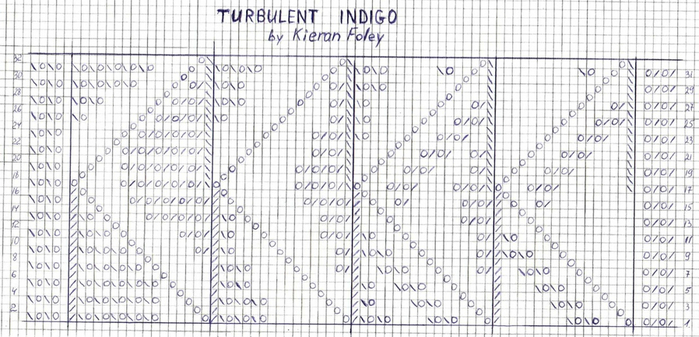 TURBULENT INDIGO
by Kieran Foley
32
31
30
29
28
27
26
25
24
23
22
21
20
19
18
17
16
15
14
13
12
11
10
9
8
7
6
5
4
3
2
1